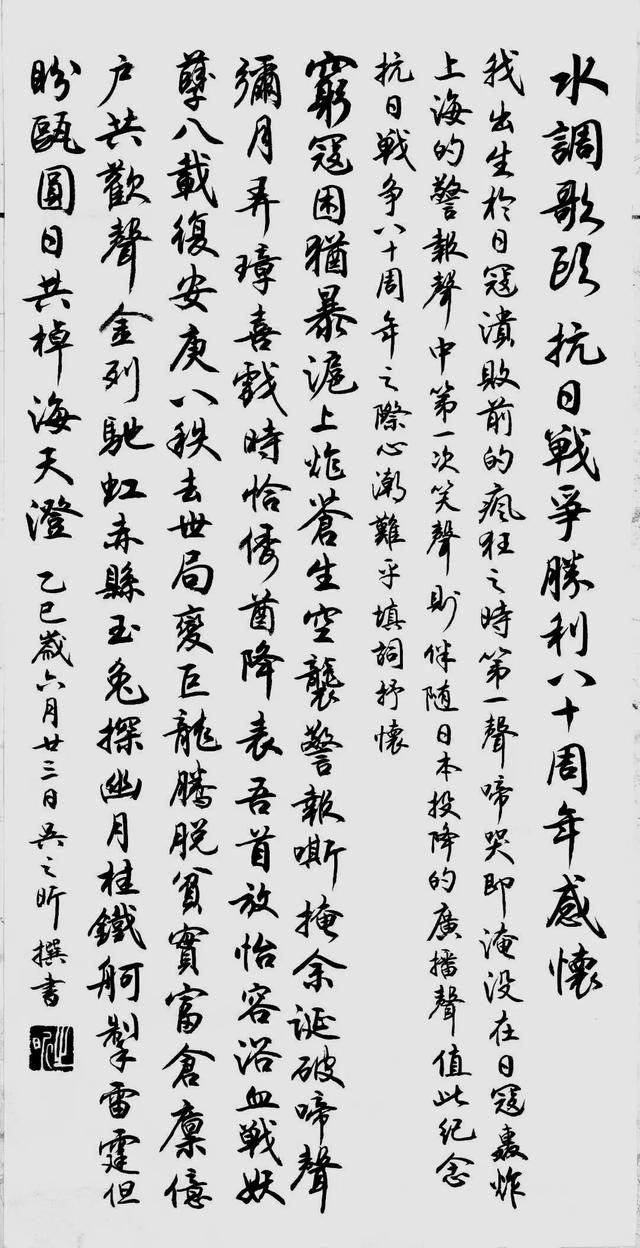 水調歌頭 抗日戰爭勝利八十周年感懷
我出生於日寇潰敗前的瘋狂之時第一聲啼哭即淹没在日寇轟炸
上海的警報聲中第一次笑聲則伴随日本投降的廣播聲值此纪念
抗日戰争八十周年之際心潮難平填詞抒懷
窮寇困猶暴滬上炸蒼生空襲警報嘶掩余誕破啼聲
彌月弄璋喜戲時恰倭酋降表吾首放怡容浴血戰妖
孽八載復安庚八秩去世局變巨龍騰脱貧實富倉廪億
户共歡聲金列馳虹赤縣玉兔探幽月桂鐵舸掣雷霆但
盼甌圓日共棹海天澄 乙巳歲六月廿三日吴之昕撰書